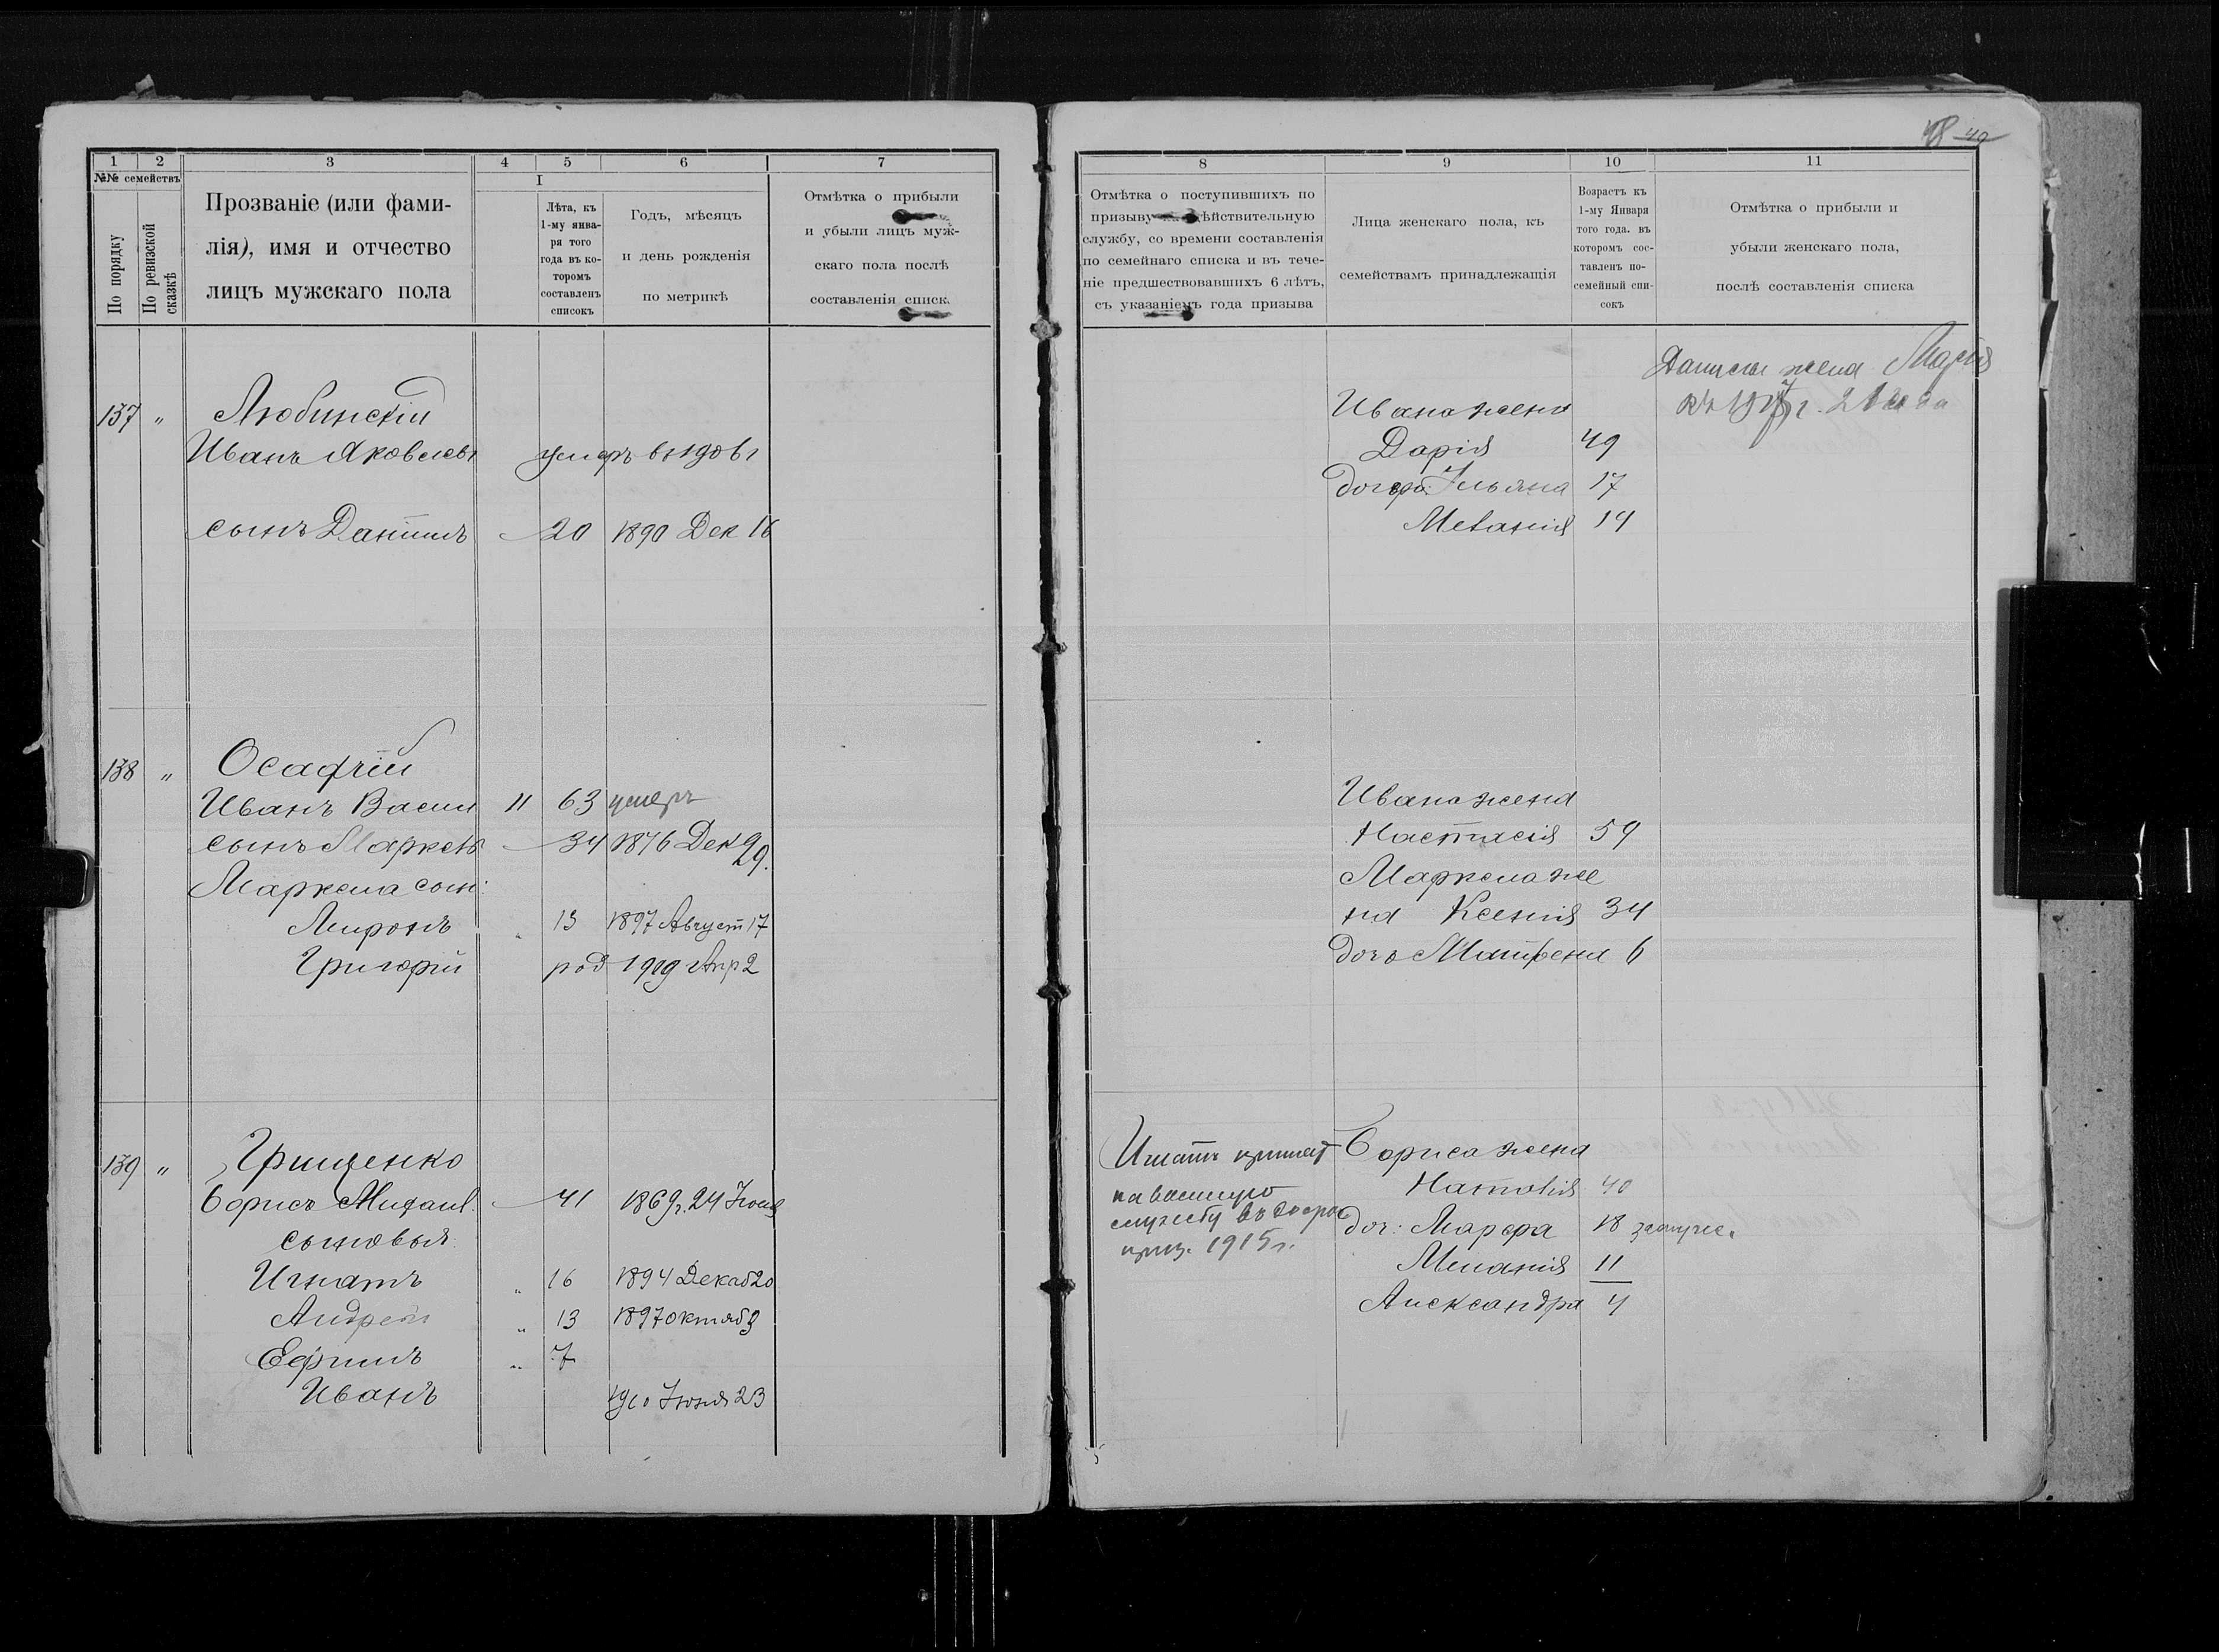 48 40
1 2 3 4 5 6 7
№№ семействъ
По порядку
По ревизской сказкѣ
Прозваніе (или фами-
лія), имя и отчество
лицъ мужскаго пола
I
Лѣта, къ
1-му янва-
ря того
года въ ко-
торомъ
составленъ
списокъ
Годъ, мѣсяцъ
и день рожденія
по метрикѣ
Отмѣтка о прибыли
и убыли лицъ муж-
скаго пола послѣ
составленія списк.
137 „ Любинскій
Иванъ Яковлевъ умеръ въ 1906 г
сынъ Даніилъ 20 1890 Дек 16
138 „ Осафчій
Иванъ Васил 11 63 умеръ
сынъ Маркелъ 34 1876 Дек 29.
Маркела сын:
Миронъ „ 13 1897 Август 17
Григорій род 1909 Апр 2
139 „ Грищенко
Борисъ Михаил. 41 1869 г. 24 Іюля
сыновья:
Игнатъ „ 16 1894 Декаб 20
Андрей „ 13 1897 октяб 9
Ефимъ „ 7
Иванъ 1910 Іюня 23
8 9 10 11
Отмѣтка о поступившихъ по
призыву на дѣйствительную
службу, со времени составленія
по семейнаго списка и въ тече-
ніе предшествовавшихъ 6 лѣтъ,
съ указаніемъ года призыва
Лица женскаго пола, къ
семействамъ принадлежащія
Возрастъ къ
1-му Января
того года. въ
которомъ сос-
тавленъ по-
семейный спи-
сокъ
Отмѣтка о прибыли и
убыли женскаго пола,
послѣ составленія списка
Данила жена Марія
Ивана жена
Дарія 49
дочери: Ульяна 17
Меланія 14
Ивана жена
Настасія 59
Маркела же
на Ксенія 34
дочь Матрена 6
Игнатъ принят
на военную
службу въ досроч
приз. 1915 г.
Бориса жена
Наталія 40
доч: Марфа 18 замуже.
Меланія 11
Александра 4